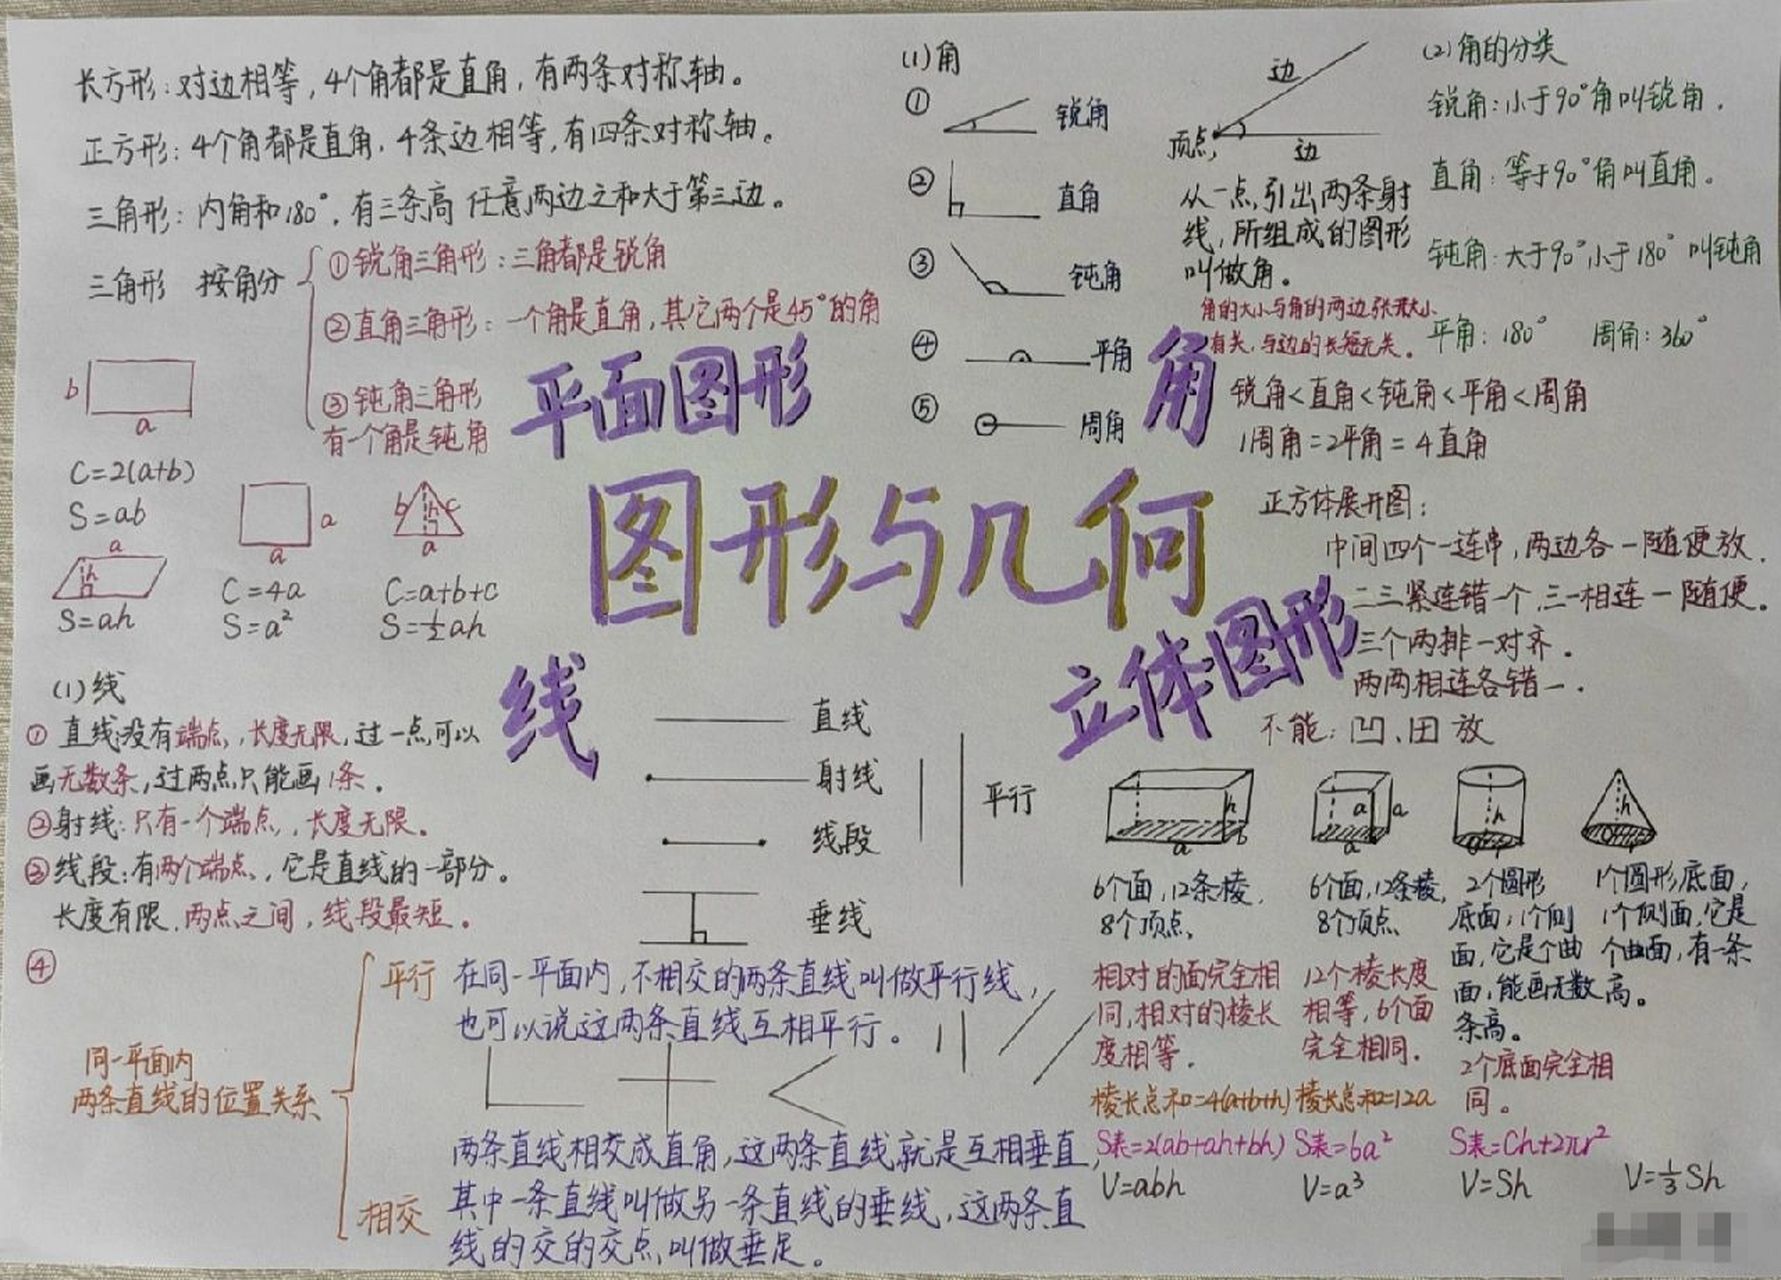 长方形：对边相等，4个角都是直角，有两条对称轴。
正方形：4个角都是直角，4条边相等，有四条对称轴。
三角形：内角和180°，有三条高 任意两边之和大于第三边。
三角形 按角分
①锐角三角形：三角都是锐角
②直角三角形：一个角是直角，其它两个是45°的角
③钝角三角形
有一个角是钝角
b
a
C=2(a+b)
S=ab
a
a
C=4a
S=a²
b h c
a
C=a+b+c
S=½ah
a
h
S=ah
平面图形
(1)角
① 锐角
② 直角
③ 钝角
④ 平角
⑤ 周角
边
顶点
边
从一点引出两条射
线，所组成的图形
叫做角。
角的大小与角的两边张开大小
有关，与边的长短无关。
角
(2)角的分类
锐角：小于90°角叫锐角．
直角：等于90°角叫直角。
钝角：大于90°小于180°叫钝角
平角：180° 周角：360°
锐角<直角<钝角<平角<周角
1周角=2平角=4直角
图形与几何
正方体展开图：
中间四个一连串，两边各一随便放．
二三紧连错一个，三一相连一随便。
三个两排一对齐．
两两相连各错一．
不能：凹、田放
立体图形
线
(1)线
①直线没有端点，长度无限，过一点可以
画无数条，过两点只能画1条．
②射线：只有一个端点，长度无限。
③线段：有两个端点，它是直线的一部分。
长度有限，两点之间，线段最短。
直线
射线
线段
垂线
平行
④
同一平面内
两条直线的位置关系
平行 在同一平面内，不相交的两条直线叫做平行线，
也可以说这两条直线互相平行。
相交
两条直线相交成直角，这两条直线就是互相垂直，
其中一条直线叫做另一条直线的垂线，这两条直
线的交的交点叫做垂足。
h
b
a
6个面，12条棱，
8个顶点、
相对的面完全相
同，相对的棱长
度相等．
棱长点和=4(a+b+h)
S表=2(ab+ah+bh)
V=abh
a
a
a
6个面，12条棱，
8个顶点
12个棱长度
相等，6个面
完全相同．
棱长总和=12a
S表=6a²
V=a³
h
r
2个圆形
底面，1个侧
面，它是个曲
面，能画无数
条高。
2个底面完全相
同。
S表=Ch+2πr²
V=Sh
h
r
1个圆形底面，
1个侧面，它是
个曲面，有一条
高。
V=⅓Sh